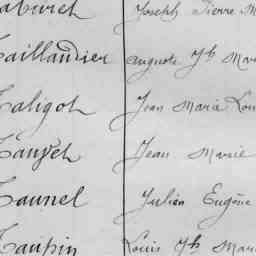 Taburet Joseph Pierre M
Taillandier Auguste Jh Mari
Taligot Jean Marie Lou
Tanvet Jean Marie
Taunel Julien Eugène
Taupin Louis Jh Mari